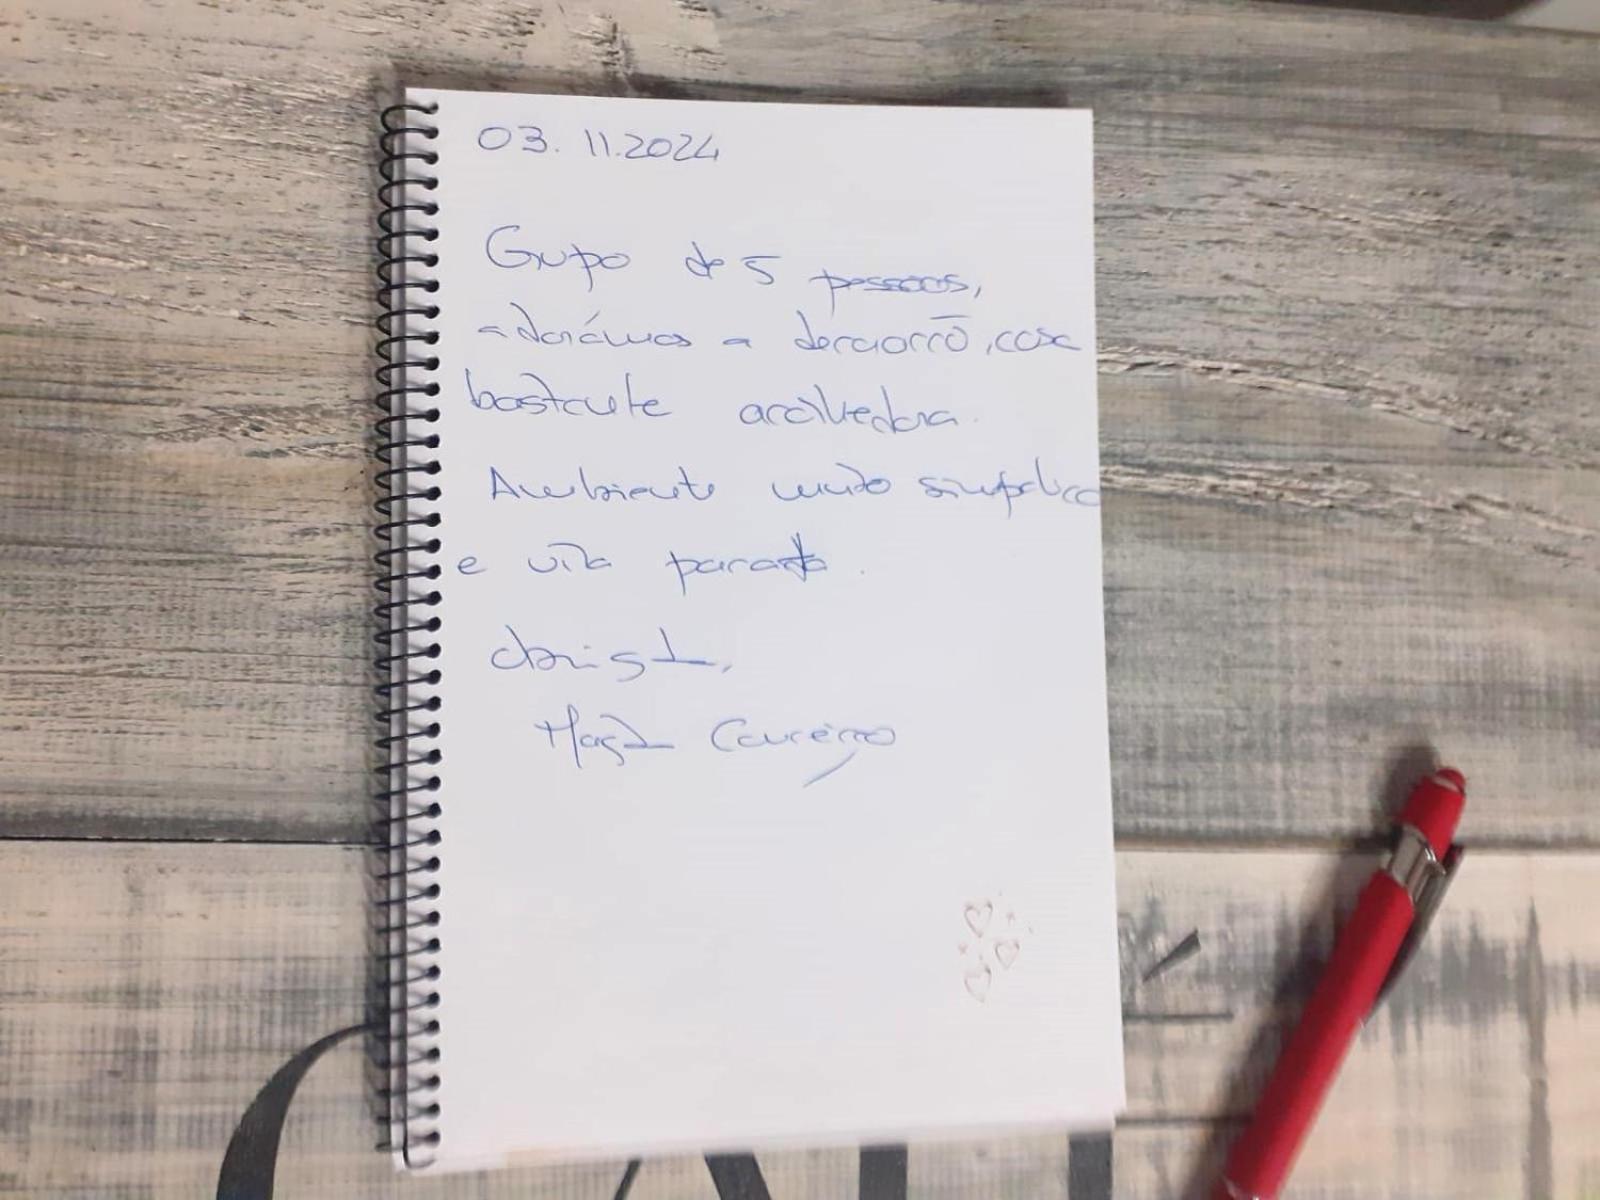 03.11.2024
Grupo de 5 pessoas,
adorámos a decoração, casa
bastante acolhedora.
Ambiente muito simpático
e vila pacata.
Obrigada,
Carreiro